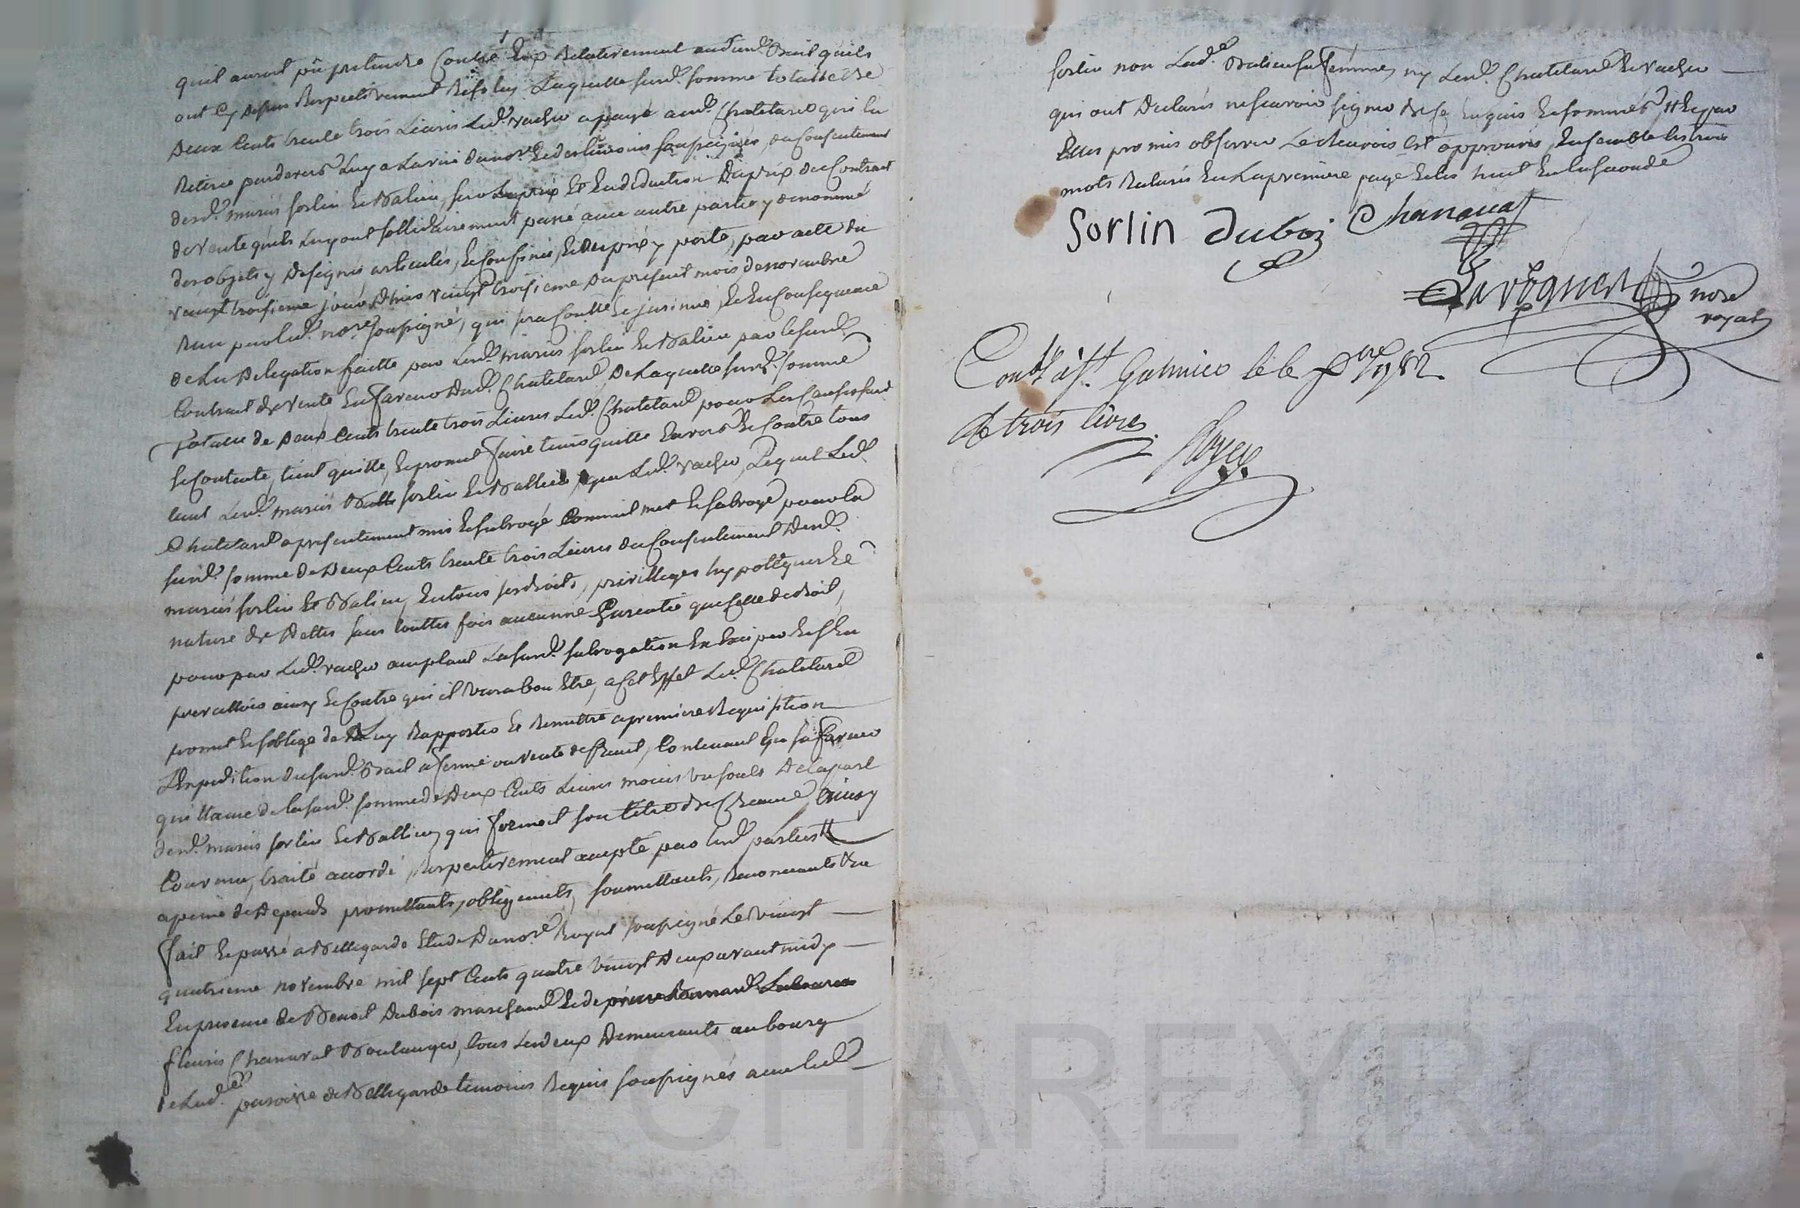 quil auroit pû pretendre Contre Eux Relativement audit Bail quils
ont cy depuis Respectivement Resolu, Laquelle surd. somme totale de
Deux Cents trente trois Livres Led. vacher a payé aud. Chatelard qui la
Retirée pardevers Luy a La vüe dunore. Et des temoins soussignés, du Consentement
desd. mariés sorlin Et Balien, sur Le prix Et En deduction Du prix du Contrat
de vente quils Luy ont sollidairement passé avec autre partie y denommé
des objets y Designés articulés, Et Confinés, Et du prix y porté, par acte du
vingt troisieme jour Dhier vingt troisieme Du present mois de novembre
Reçu par Led. nore. soussigné, qui sera Controllé Et insinué, Et En Consequence
de La Delegation faitte par Lesd. mariés sorlin Et Balien par Le surd.
Contrat de vente En faveur Dud. Chatelard, De Laquelle surd. somme
totale de Deux Cents trente trois Livres Led. Chatelard pour Les Causes surd.
Se Contente, tient quitte, Et promet faire tenir quitte Envers Et Contre tous
tant Lesd. mariés sorlin Et Ballien, que Led. vacher, Lequel Led.
Chatelard a presentement mis Et subrogé Comme il met Et subroge pour la
surd. somme de Deux Cents trente trois Livres du Consentement Desd.
mariés sorlin Et Balien, En tous ses droits, privilleges hypotteques Et
nature de Dettes sans touttes fois aucunne Garentie que Celle de droit,
pour par Led. vacher
prevalloir ainsy Et Contre qui il verra bon Etre, a Cet Effet Led. Chatelard
promet Et soblige de Luy Rapporter Et Remettre a premiere Requisition
LExpedition dusurd. Bail a ferme ou vente de fruit, Contenant En sa faveur
quittance de la surd. somme de Deux Cents Livres moins vu sols De la part
desd. mariés sorlin Et Ballien, qui formoit son titre de Creance, Ainsy
Convenu, traité accordé, Respectivement accepté par Lesd. parties #
a peine de Depends promettants, obligeants, soumettants, Renonceants &a
fait Et passé a Bellegarde Etude Dunore. Royal soussigné Le vingt
quatrieme novembre mil sept Cents quatre vingt Deux avant midy
En presence de Benoit Dubois marchand Et de
fleuris Chanavat Boulanger, tous Les deux Demeurants au bourg
& Lad. paroisse de Bellegarde temoins Requis soussignés avec Led.
sorlin non Lad. Balien sa femme, ny Lesd. Chatelard Et vacher
qui ont Declarés ne sçavoir signer de ce Enquis Et sommés, # Et par
Eux promis observer Le Renvois Est approuvés, Ensemble les trois
mots Raturés En La premiere page Et les huit En la seconde
Sorlin Duboi Chanavat
nore
royal
Contlé à St. Galmier le 6e Xbre 1782.
R trois livres